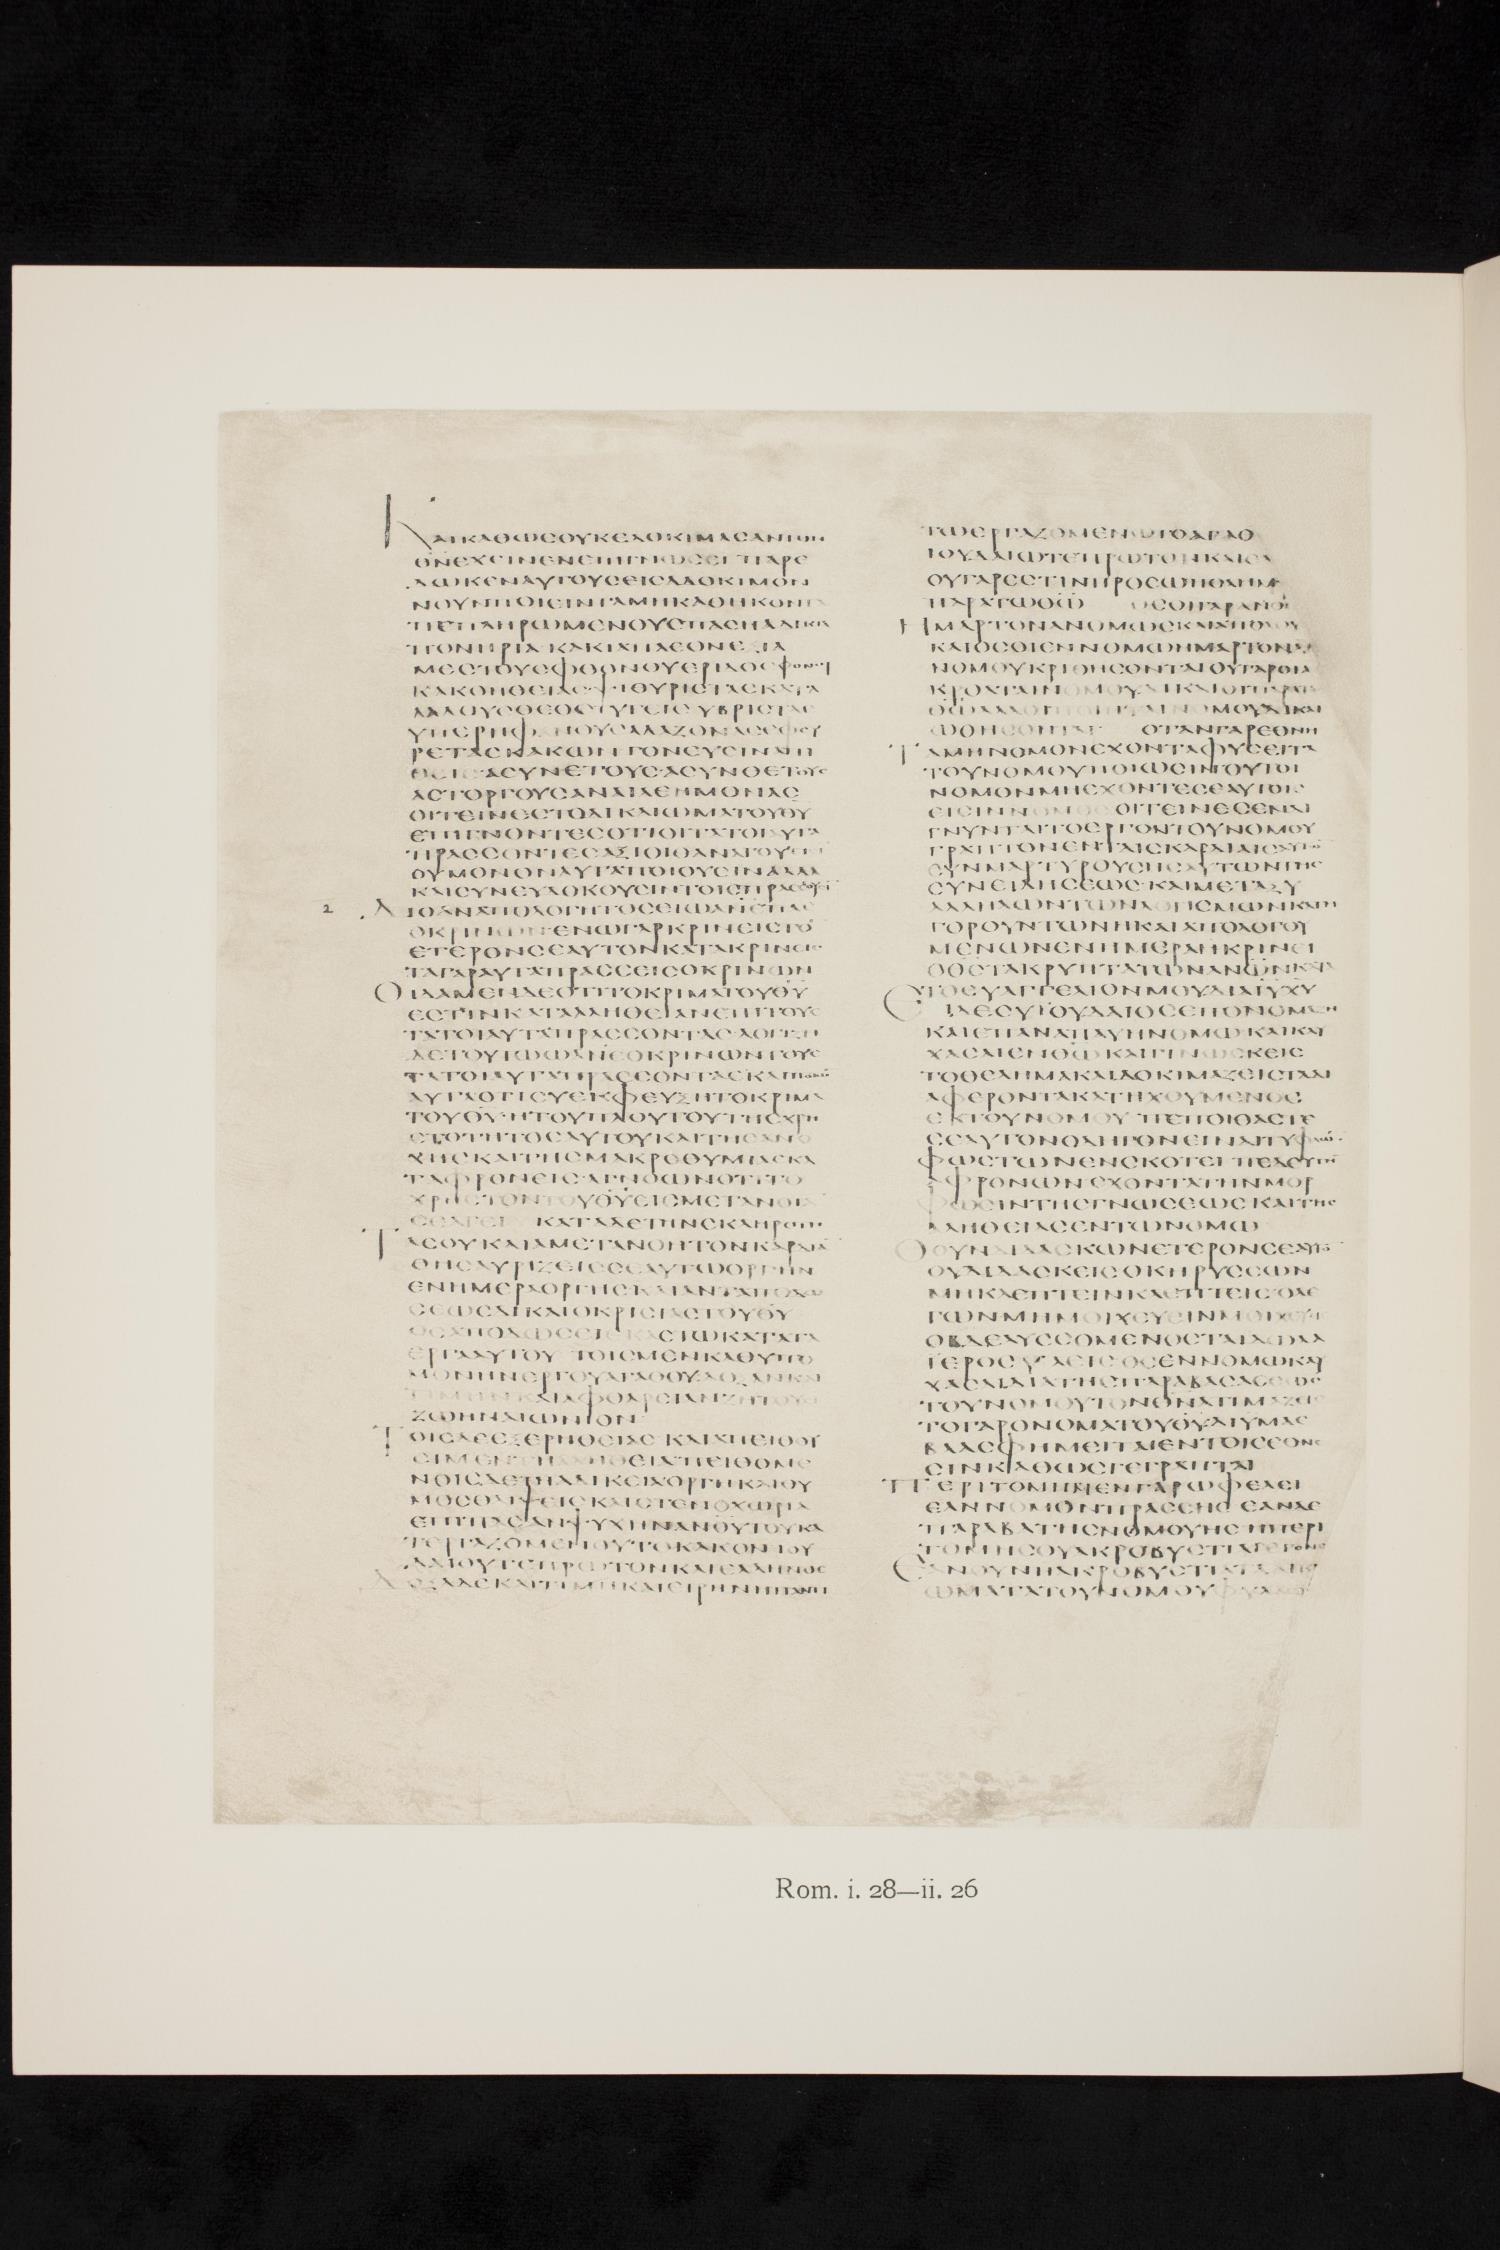 ΚΑΙΚΑΘΩϹΟΥΚΕΔΟΚΙΜΑϹΑΝΤΟΝ
ΘΝΕΧΕΙΝΕΝΕΠΙΓΝΩϹΕΙ ΠΑΡΕ
ΔΩΚΕΝΑΥΤΟΥϹΕΙϹΑΔΟΚΙΜΟΝ
ΝΟΥΝΠΟΙΕΙΝΤΑΜΗΚΑΘΗΚΟΝΤΑ
ΠΕΠΛΗΡΩΜΕΝΟΥϹΠΑϹΗΑΔΙΚΙΑ
ΠΟΝΗΡΙΑ ΚΑΚΙΑΠΛΕΟΝΕΞΙΑ
ΜΕϹΤΟΥϹΦΘΟΝΟΥΕΡΙΔΟϹ
ΚΑΚΟΗΘΕΙΑϹΨΙΘΥΡΙϹΤΑϹΚΑΤΑ
ΛΑΛΟΥϹΘΕΟϹΤΥΓΕΙϹ ΥΒΡΙϹΤΑϹ
ΥΠΕΡΗΦΑΝΟΥϹΑΛΑΖΟΝΑϹΕΦΕΥ
ΡΕΤΑϹΚΑΚΩΝ ΓΟΝΕΥϹΙΝΑΠΙ
ΘΕΙϹ ΑϹΥΝΕΤΟΥϹΑϹΥΝΘΕΤΟΥϹ
ΑϹΤΟΡΓΟΥϹΑΝΕΛΕΗΜΟΝΑϹ
ΟΙΤΕΙΝΕϹΤΟΔΙΚΑΙΩΜΑΤΟΥΘΥ
ΕΠΙΓΝΟΝΤΕϹΟΤΙΟΙΤΑΤΟΙΑΥΤΑ
ΠΡΑϹϹΟΝΤΕϹΑΞΙΟΙΘΑΝΑΤΟΥ
ΟΥΜΟΝΟΝΑΥΤΑΠΟΙΟΥϹΙΝΑΛΛΑ
ΚΑΙϹΥΝΕΥΔΟΚΟΥϹΙΝΤΟΙϹΠΡΑϹϹΟΥϹΙ
2 ΔΙΟΑΝΑΠΟΛΟΓΗΤΟϹΕΙΩΑΝΕΠΑϹ
ΟΚΡΙΝΩΝ ΕΝΩΓΑΡΚΡΙΝΕΙϹΤΟ
ΕΤΕΡΟΝϹΕΑΥΤΟΝΚΑΤΑΚΡΙΝΕΙϹ
ΤΑΓΑΡΑΥΤΑΠΡΑϹϹΕΙϹΟΚΡΙΝΩΝ
ΟΙΔΑΜΕΝΔΕΟΤΙΤΟΚΡΙΜΑΤΟΥΘΥ
ΕϹΤΙΝΚΑΤΑΛΗΘΕΙΑΝΕΠΙΤΟΥϹ
ΤΑΤΟΙΑΥΤΑΠΡΑϹϹΟΝΤΑϹ ΛΟΓΙΖΗ
ΔΕΤΟΥΤΟΩΑΝΕΟΚΡΙΝΩΝΤΟΥϹ
ΤΑΤΟΙΑΥΤΑΠΡΑϹϹΟΝΤΑϹΚΑΙΠΟΙΩΝ
ΑΥΤΑΟΤΙϹΥΕΚΦΕΥΞΗΤΟΚΡΙΜΑ
ΤΟΥΘΥ ΗΤΟΥΠΛΟΥΤΟΥΤΗϹΧΡΗ
ϹΤΟΤΗΤΟϹΑΥΤΟΥΚΑΙΤΗϹΑΝΟ
ΧΗϹΚΑΙΤΗϹΜΑΚΡΟΘΥΜΙΑϹΚΑ
ΤΑΦΡΟΝΕΙϹ ΑΓΝΟΩΝΟΤΙΤΟ
ΧΡΗϹΤΟΝΤΟΥΘΥΕΙϹΜΕΤΑΝΟΙΑ
ϹΕΑΓΕΙ ΚΑΤΑΔΕΤΗΝϹΚΛΗΡΟΤΗ
ΤΑϹΟΥΚΑΙΑΜΕΤΑΝΟΗΤΟΝΚΑΡΔΙΑ
ΘΗϹΑΥΡΙΖΕΙϹϹΕΑΥΤΩΟΡΓΗΝ
ΕΝΗΜΕΡΑΟΡΓΗϹΚΑΙΑΝΤΑΠΟΔΟ
ϹΕΩϹΔΙΚΑΙΟΚΡΙϹΙΑϹΤΟΥΘΥ
ΟϹΑΠΟΔΩϹΕΙΕΚΑϹΤΩΚΑΤΑΤΑ
ΕΡΓΑΑΥΤΟΥ ΤΟΙϹΜΕΝΚΑΘΥΠΟ
ΜΟΝΗΝΕΡΓΟΥΑΓΑΘΟΥΔΟΞΑΝΚΑΙ
ΤΙΜΗΝΚΑΙΑΦΘΑΡϹΙΑΝΖΗΤΟΥϹΙ
ΖΩΗΝΑΙΩΝΙΟΝ
ΤΟΙϹΔΕΕΞΕΡΙΘΕΙΑϹ ΚΑΙΑΠΕΙΘΟΥ
ϹΙΜΕΝΤΗΑΛΗΘΕΙΑΠΕΙΘΟΜΕ
ΝΟΙϹΔΕΤΗΑΔΙΚΕΙΑΟΡΓΗΚΑΙΘΥ
ΜΟϹΘΛΙΨΕΙϹΚΑΙϹΤΕΝΟΧΩΡΙΑ
ΕΠΙΠΑϹΑΝΨΥΧΗΝΑΝΟΥΤΟΥΚΑ
ΤΕΡΓΑΖΟΜΕΝΟΥΤΟΚΑΚΟΝΙΟΥ
ΔΑΙΟΥΤΕΠΡΩΤΟΝΚΑΙΕΛΛΗΝΟϹ
ΔΟΞΑΔΕΚΑΙΤΙΜΗΚΑΙΕΙΡΗΝΗΠΑΝΤΙ
ΤΩΕΡΓΑΖΟΜΕΝΩΤΟΑΓΑΘΟ
ΙΟΥΔΑΙΩΤΕΠΡΩΤΟΝΚΑΙΕΛ
ΟΥΓΑΡΕϹΤΙΝΠΡΟϹΩΠΟΛΗΜ
ΠΑΡΑΤΩΘΩ ΟϹΟΙΓΑΡΑΝΟ
ΗΜΑΡΤΟΝΑΝΟΜΩϹΚΑΙΑΠΟΛΟΥ
ΚΑΙΟϹΟΙΕΝΝΟΜΩΗΜΑΡΤΟΝ
ΝΟΜΟΥΚΡΙΘΗϹΟΝΤΑΙΟΥΓΑΡΟΙΑ
ΚΡΟΑΤΑΙΝΟΜΟΥΔΙΚΑΙΟΙΠΑΡΑ
ΘΩΑΛΛΟΙΠΟΙΗΤΑΙΝΟΜΟΥΔΙΚΑΙ
ΩΘΗϹΟΝΤΑΙ ΟΤΑΝΓΑΡΕΘΝΗ
ΤΑΜΗΝΟΜΟΝΕΧΟΝΤΑΦΥϹΕΙΤΑ
ΤΟΥΝΟΜΟΥΠΟΙΩϹΙΝΟΥΤΟΙ
ΝΟΜΟΝΜΗΕΧΟΝΤΕϹΕΑΥΤΟΙϹ
ΕΙϹΙΝΝΟΜΟϹ ΟΙΤΕΙΝΕϹΕΝΔΙ
ΓΝΥΝΤΑΙΤΟΕΡΓΟΝΤΟΥΝΟΜΟΥ
ΓΡΑΠΤΟΝΕΝΤΑΙϹΚΑΡΔΙΑΙϹΑΥΤΩ
ϹΥΝΜΑΡΤΥΡΟΥϹΗϹΑΥΤΩΝΤΗϹ
ϹΥΝΕΙΔΗϹΕΩϹ ΚΑΙΜΕΤΑΞΥ
ΑΛΛΗΛΩΝΤΩΝΛΟΓΙϹΜΩΝΚΑΤΗ
ΓΟΡΟΥΝΤΩΝΗΚΑΙΑΠΟΛΟΓΟΥ
ΜΕΝΩΝΕΝΗΜΕΡΑΗΚΡΙΝΕΙ
ΟΘϹΤΑΚΡΥΠΤΑΤΩΝΑΝΩΝΚΑΤΑ
ΤΟΕΥΑΓΓΕΛΙΟΝΜΟΥΔΙΑΙΥΧΥ
ΕΙΔΕϹΥΙΟΥΔΑΙΟϹΕΠΟΝΟΜΑΖΗ
ΚΑΙΕΠΑΝΑΠΑΥΗΝΟΜΩ ΚΑΙΚΑΥ
ΧΑϹΑΙΕΝΘΩ ΚΑΙΓΙΝΩϹΚΕΙϹ
ΤΟΘΕΛΗΜΑΚΑΙΔΟΚΙΜΑΖΕΙϹΤΑΔΙ
ΑΦΕΡΟΝΤΑΚΑΤΗΧΟΥΜΕΝΟϹ
ΕΚΤΟΥΝΟΜΟΥ ΠΕΠΟΙΘΑϹΤΕ
ϹΕΑΥΤΟΝΟΔΗΓΟΝΕΙΝΑΙΤΥΦΛΩ
ΦΩϹΤΩΝΕΝϹΚΟΤΕΙ ΠΑΙΔΕΥΤΗ
ΑΦΡΟΝΩΝΕΧΟΝΤΑΤΗΝΜΟΡ
ΦΩϹΙΝΤΗϹΓΝΩϹΕΩϹΚΑΙΤΗϹ
ΑΛΗΘΕΙΑϹΕΝΤΩΝΟΜΩ
ΟΟΥΝΔΙΔΑϹΚΩΝΕΤΕΡΟΝϹΕΑΥΤΟ
ΟΥΔΙΔΑϹΚΕΙϹΟΚΗΡΥϹϹΩΝ
ΜΗΚΛΕΠΤΕΙΝΚΛΕΠΤΕΙϹΟΛΕ
ΓΩΝΜΗΜΟΙΧΕΥΕΙΝΜΟΙΧΕΥΕΙϹ
ΟΒΔΕΛΥϹϹΟΜΕΝΟϹΤΑΙΔΩΛΑ
ΙΕΡΟϹΥΛΕΙϹ ΟϹΕΝΝΟΜΩΚΑΥ
ΧΑϹΑΙΔΙΑΤΗϹΠΑΡΑΒΑϹΕΩϹ
ΤΟΥΝΟΜΟΥΤΟΝΘΝΑΤΙΜΑΖΕΙϹ
ΤΟΓΑΡΟΝΟΜΑΤΟΥΘΥΔΙΥΜΑϹ
ΒΛΑϹΦΗΜΕΙΤΑΙΕΝΤΟΙϹΕΘΝΕ
ϹΙΝΚΑΘΩϹΓΕΓΡΑΠΤΑΙ
ΠΕΡΙΤΟΜΗΜΕΝΓΑΡΩΦΕΛΕΙ
ΕΑΝΝΟΜΟΝΠΡΑϹϹΗϹ ΕΑΝΔΕ
ΠΑΡΑΒΑΤΗϹΝΟΜΟΥΗϹ ΗΠΕΡΙ
ΤΟΜΗϹΟΥΑΚΡΟΒΥϹΤΙΑΓΕΓΟΝΕ
ΕΑΝΟΥΝΗΑΚΡΟΒΥϹΤΙΑΤΑΔΙΚΑΙ
ΩΜΑΤΑΤΟΥΝΟΜΟΥΦΥΛΑϹ
Rom. i. 28—ii. 26